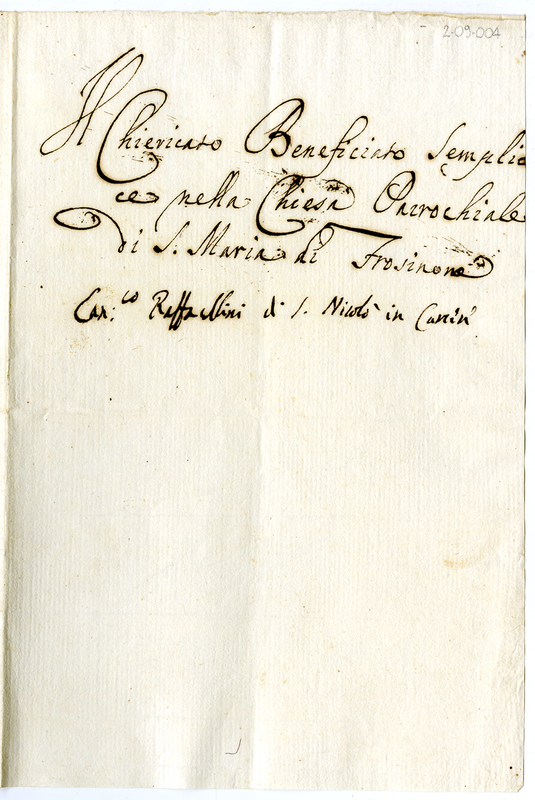 2-09-004
Il Chiericato Beneficiato Sempli
ce nella Chiesa Parrochiale
di S. Maria di Frosinone
Can.co Raffaellini di S. Nicolò in